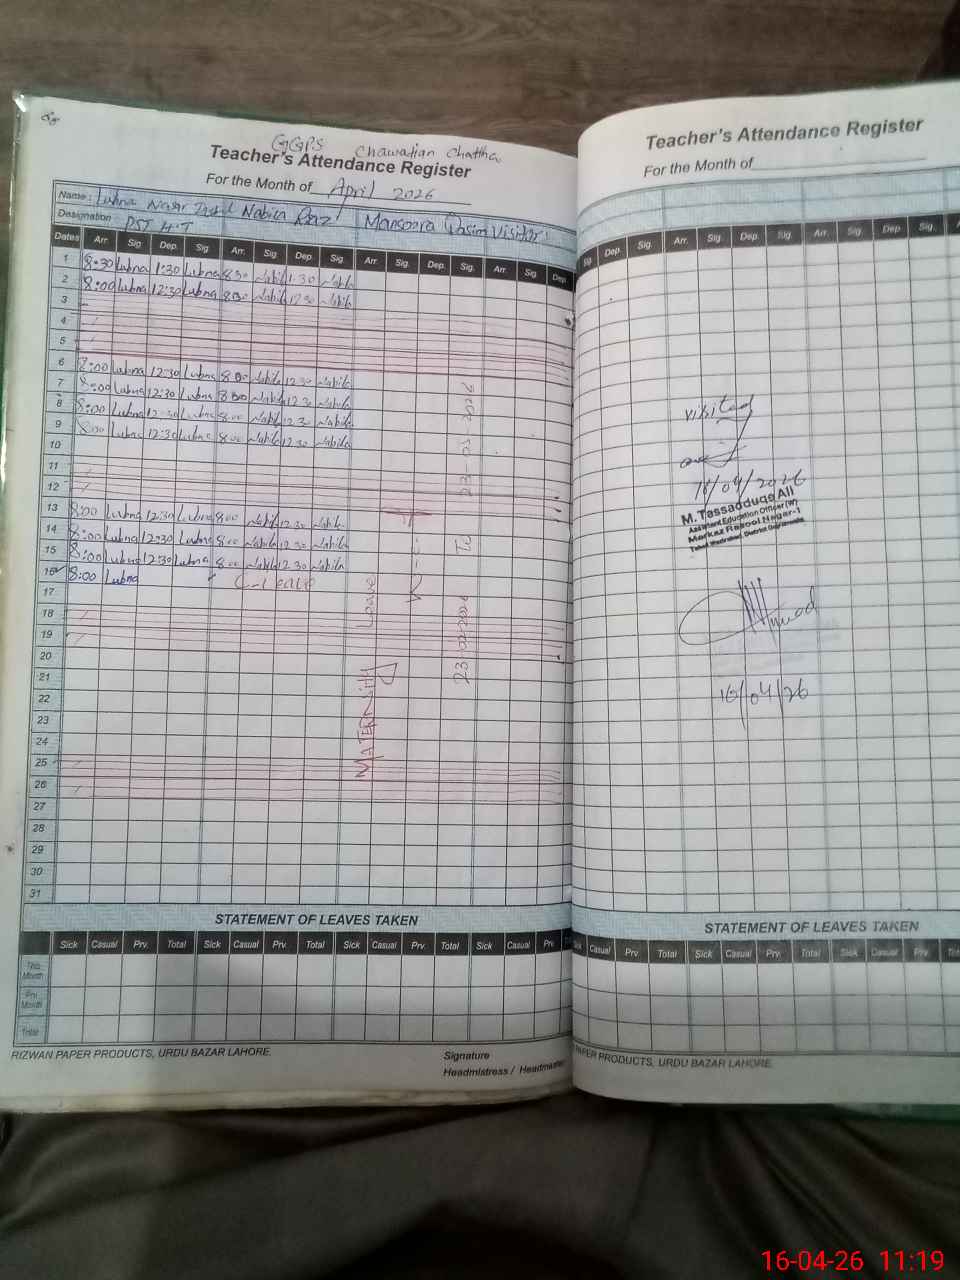 GGPS Chawalian Chattha
Teacher's Attendance Register
For the Month of April 2026
Name: Lubna Nasar Nabila Riaz Mansoora Qasim Visitor:
Designation PST H.T
Dates Arr. Sig. Dep. Sig. Arr. Sig. Dep. Sig. Arr. Sig. Dep. Sig. Arr. Sig. Dep.
1 8:30 Lubna 1:30 Lubna 8 30 Nabila 1:30 Nabila
2 8:00 Lubna 12:30 Lubna 8 00 Nabila 12 30 Nabila
3
4
5
6 8:00 Lubna 12:30 Lubna 8 00 Nabila 12 30 Nabila
7 8:00 Lubna 12:30 Lubna 8 00 Nabila 12 30 Nabila
8 8:00 Lubna 12:30 Lubna 8 00 Nabila 12 30 Nabila
9 8:00 Lubna 12:30 Lubna 8 00 Nabila 12 30 Nabila
10
11
12
13 8:00 Lubna 12:30 Lubna 8 00 Nabila 12 30 Nabila
14 8:00 Lubna 12:30 Lubna 8 00 Nabila 12 30 Nabila
15 8:00 Lubna 12:30 Lubna 8 00 Nabila 12 30 Nabila
16 8:00 Lubna C-Leave
17
18
19
20
21
22
23
24
25
26
27
28
29
30
31
MATERNITY Leave
23-02-2026 To 23-05-2026
STATEMENT OF LEAVES TAKEN
Sick Casual Prv. Total Sick Casual Prv. Total Sick Casual Prv. Total Sick Casual Prv.
This Month
Prv. Month
Total
RIZWAN PAPER PRODUCTS, URDU BAZAR LAHORE.
Signature
Headmistress / Headmaster
Teacher's Attendance Register
For the Month of
Sig. Dep. Sig. Arr. Sig. Dep. Sig. Arr. Sig. Dep. Sig.
visited
16/04/2026
M. Tassadduqe Ali
Assistant Education Officer (W)
Markaz Rasool Nagar-1
16/04/26
STATEMENT OF LEAVES TAKEN
Sick Casual Prv. Total Sick Casual Prv. Total Sick Casual Prv.
PAPER PRODUCTS, URDU BAZAR LAHORE.
16-04-26 11:19